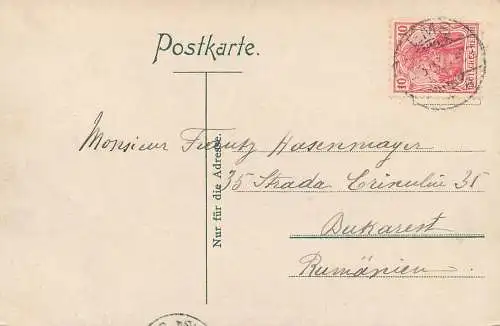 Postkarte.
Nur für die Adresse.
Monsieur Frantz Hasenmayer
35 Strada Crinului 35
Bukarest
Rumänien
10 10